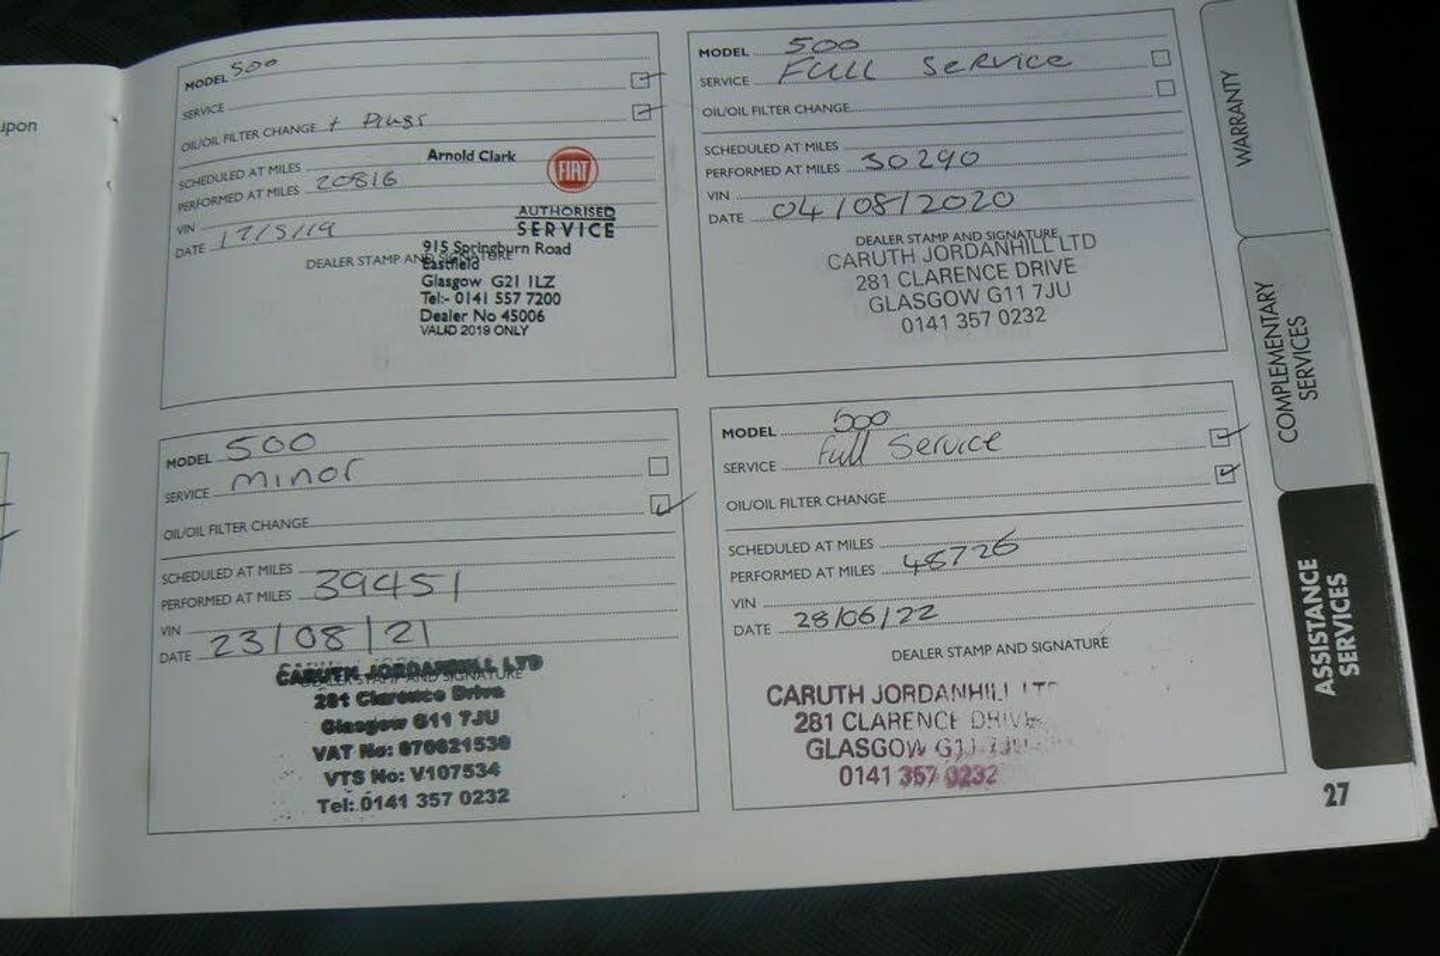 upon
MODEL 500
SERVICE
OIL/OIL FILTER CHANGE + Plugs
SCHEDULED AT MILES
PERFORMED AT MILES 20816
VIN
DATE 17/5/19
DEALER STAMP AND SIGNATURE
Arnold Clark
FIAT
AUTHORISED
SERVICE
915 Springburn Road
Eastfield
Glasgow G21 1LZ
Tel:- 0141 557 7200
Dealer No 45006
VALID 2019 ONLY
MODEL 500
SERVICE FULL Service
OIL/OIL FILTER CHANGE
SCHEDULED AT MILES
PERFORMED AT MILES 30290
VIN
DATE 04/08/2020
DEALER STAMP AND SIGNATURE
CARUTH JORDANHILL LTD
281 CLARENCE DRIVE
GLASGOW G11 7JU
0141 357 0232
MODEL 500
SERVICE minor
OIL/OIL FILTER CHANGE
SCHEDULED AT MILES
PERFORMED AT MILES 39451
VIN
DATE 23/08/21
DEALER STAMP AND SIGNATURE
CARUTH JORDANHILL LTD
281 Clarence Drive
Glasgow G11 7JU
VAT No: 870621539
VTS No: V107534
Tel: 0141 357 0232
MODEL 500
SERVICE Full Service
OIL/OIL FILTER CHANGE
SCHEDULED AT MILES
PERFORMED AT MILES 48726
VIN
DATE 28/06/22
DEALER STAMP AND SIGNATURE
CARUTH JORDANHILL LTD
281 CLARENCE DRIVE
GLASGOW G11 7JU
0141 357 0232
WARRANTY
COMPLEMENTARY
SERVICES
ASSISTANCE
SERVICES
27